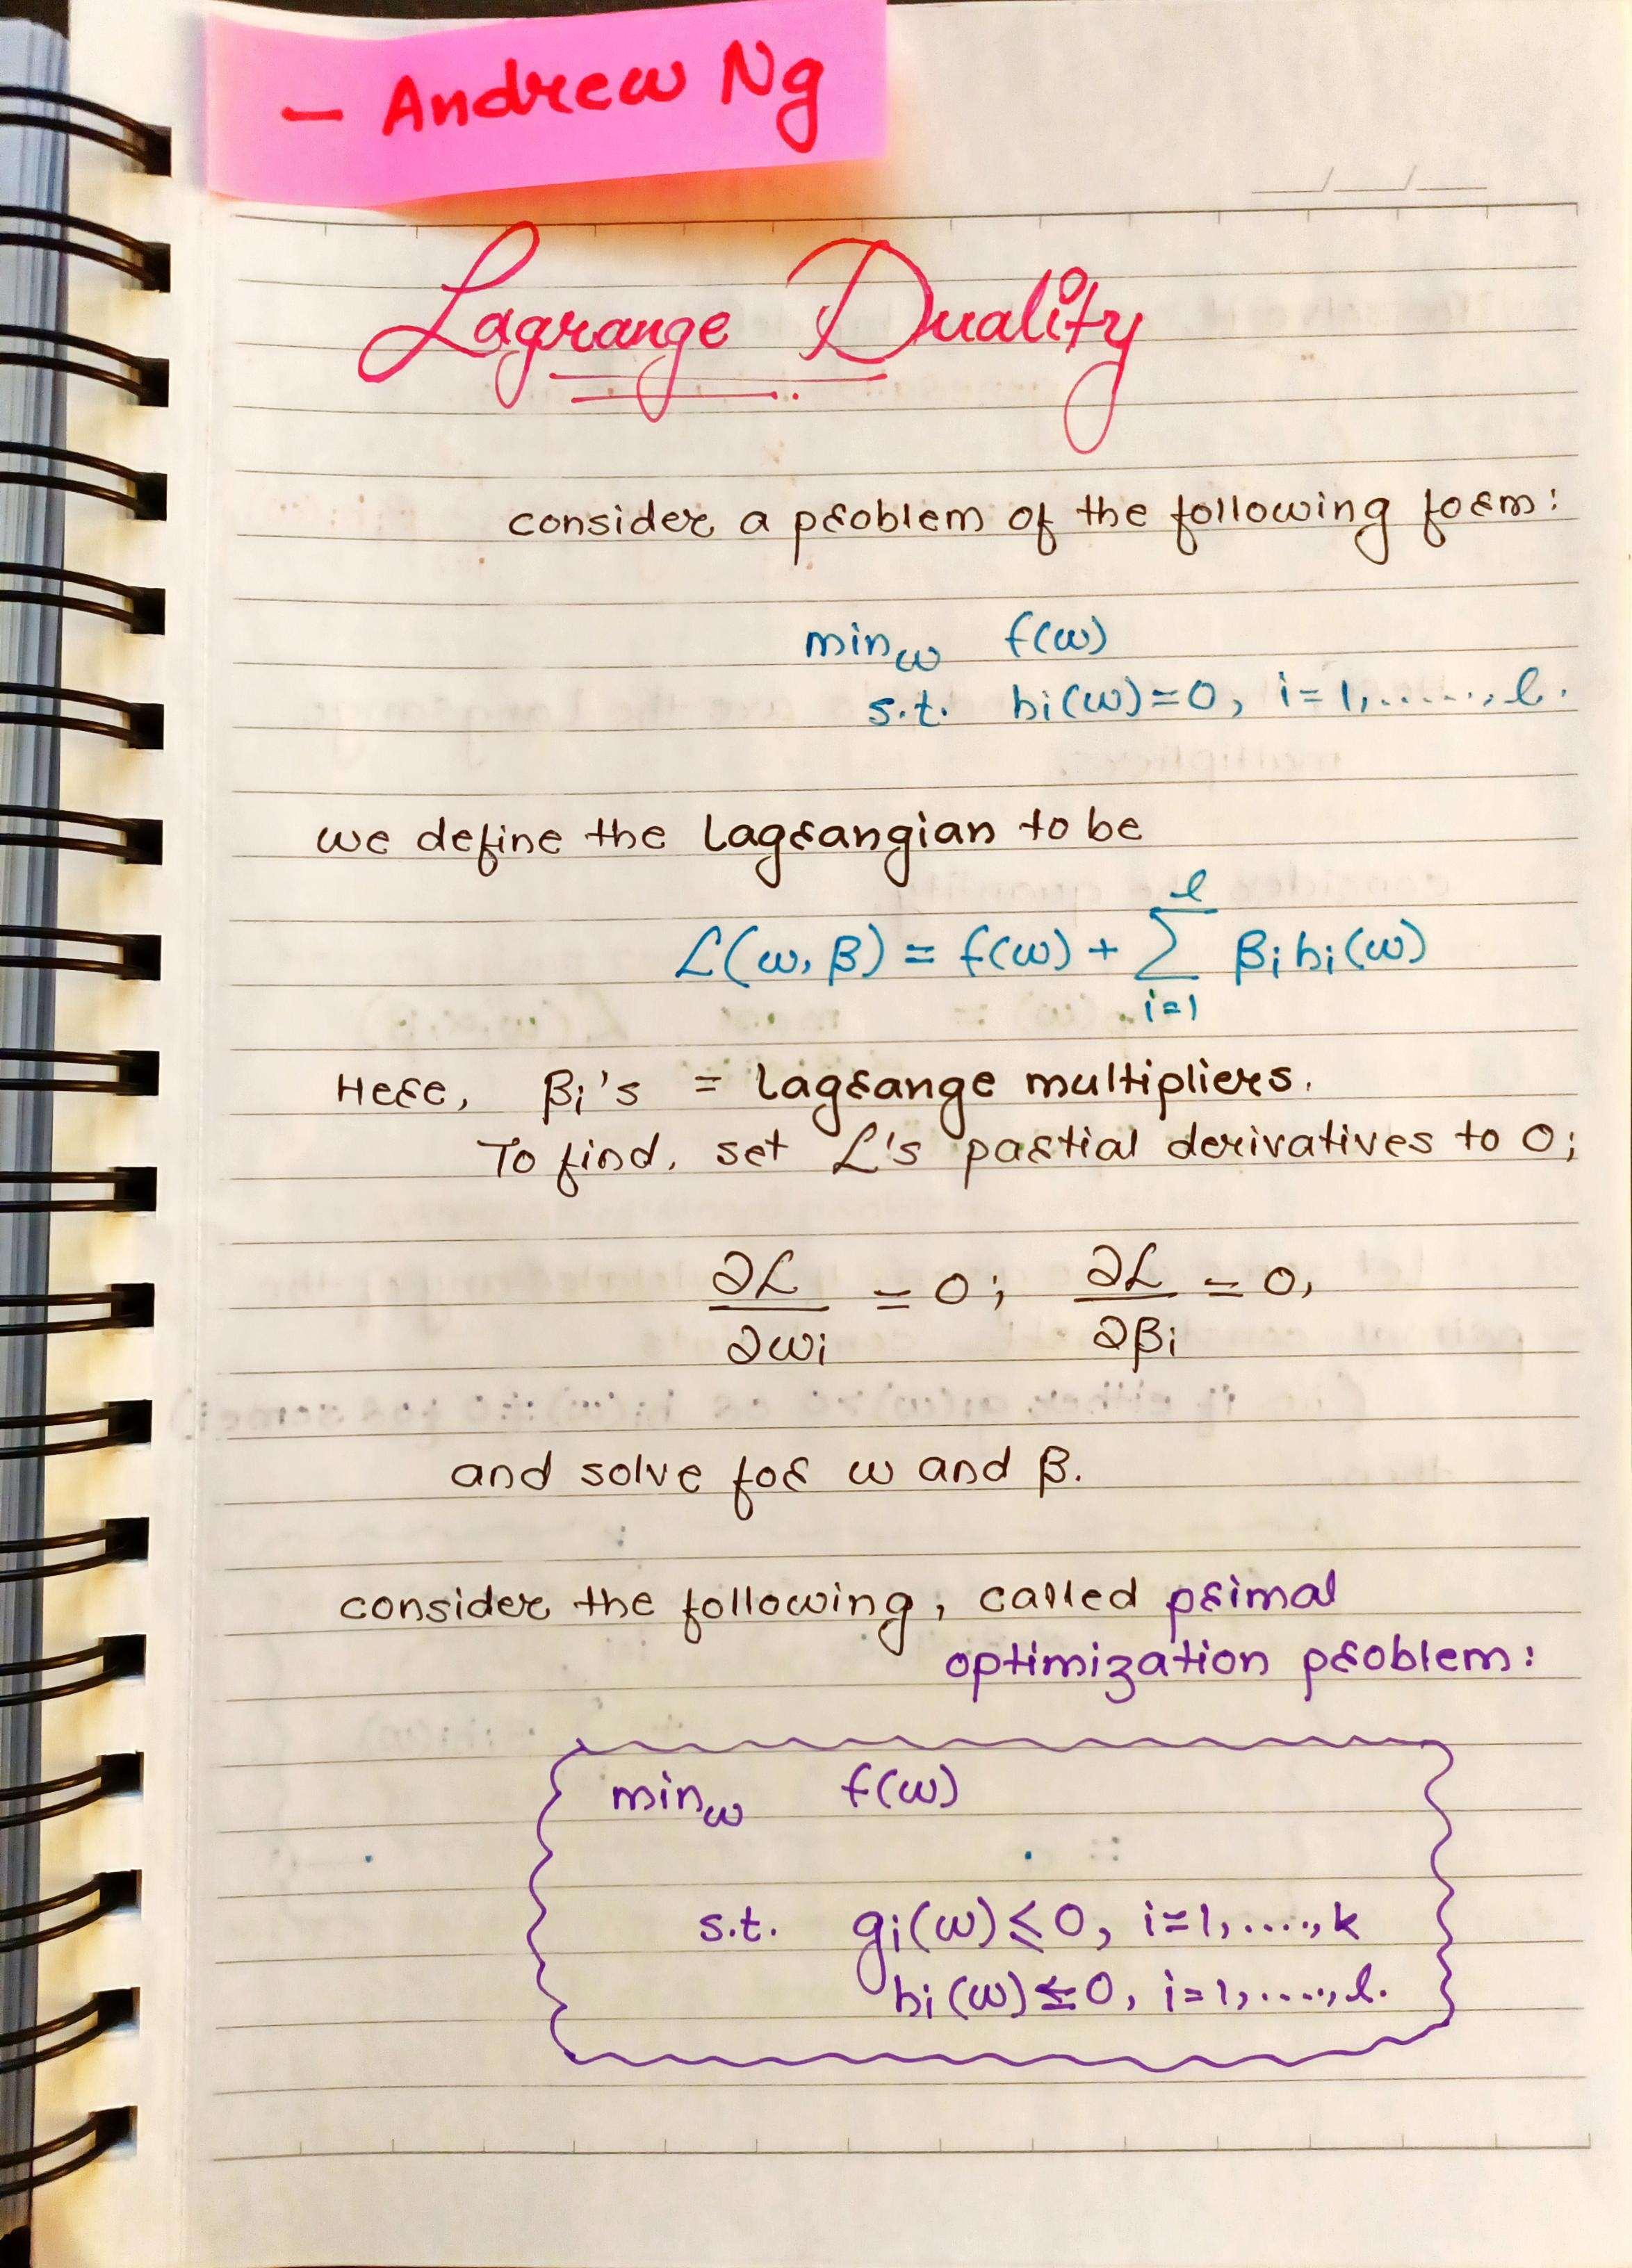 - Andrew Ng
Lagrange Duality
consider a problem of the following form:
min_w f(w)
s.t. hi(w)=0, i=1,......, l.
we define the Lagrangian to be
L(w, β) = f(w) + Σ_{i=1}^{l} βi hi(w)
Here, βi's = Lagrange multipliers.
To find, set L's partial derivatives to 0;
∂L/∂wi = 0; ∂L/∂βi = 0,
and solve for w and β.
consider the following, called primal
optimization problem:
min_w f(w)
s.t. gi(w) ≤ 0, i=1,....,k
hi(w) ≤ 0, i=1,....,l.